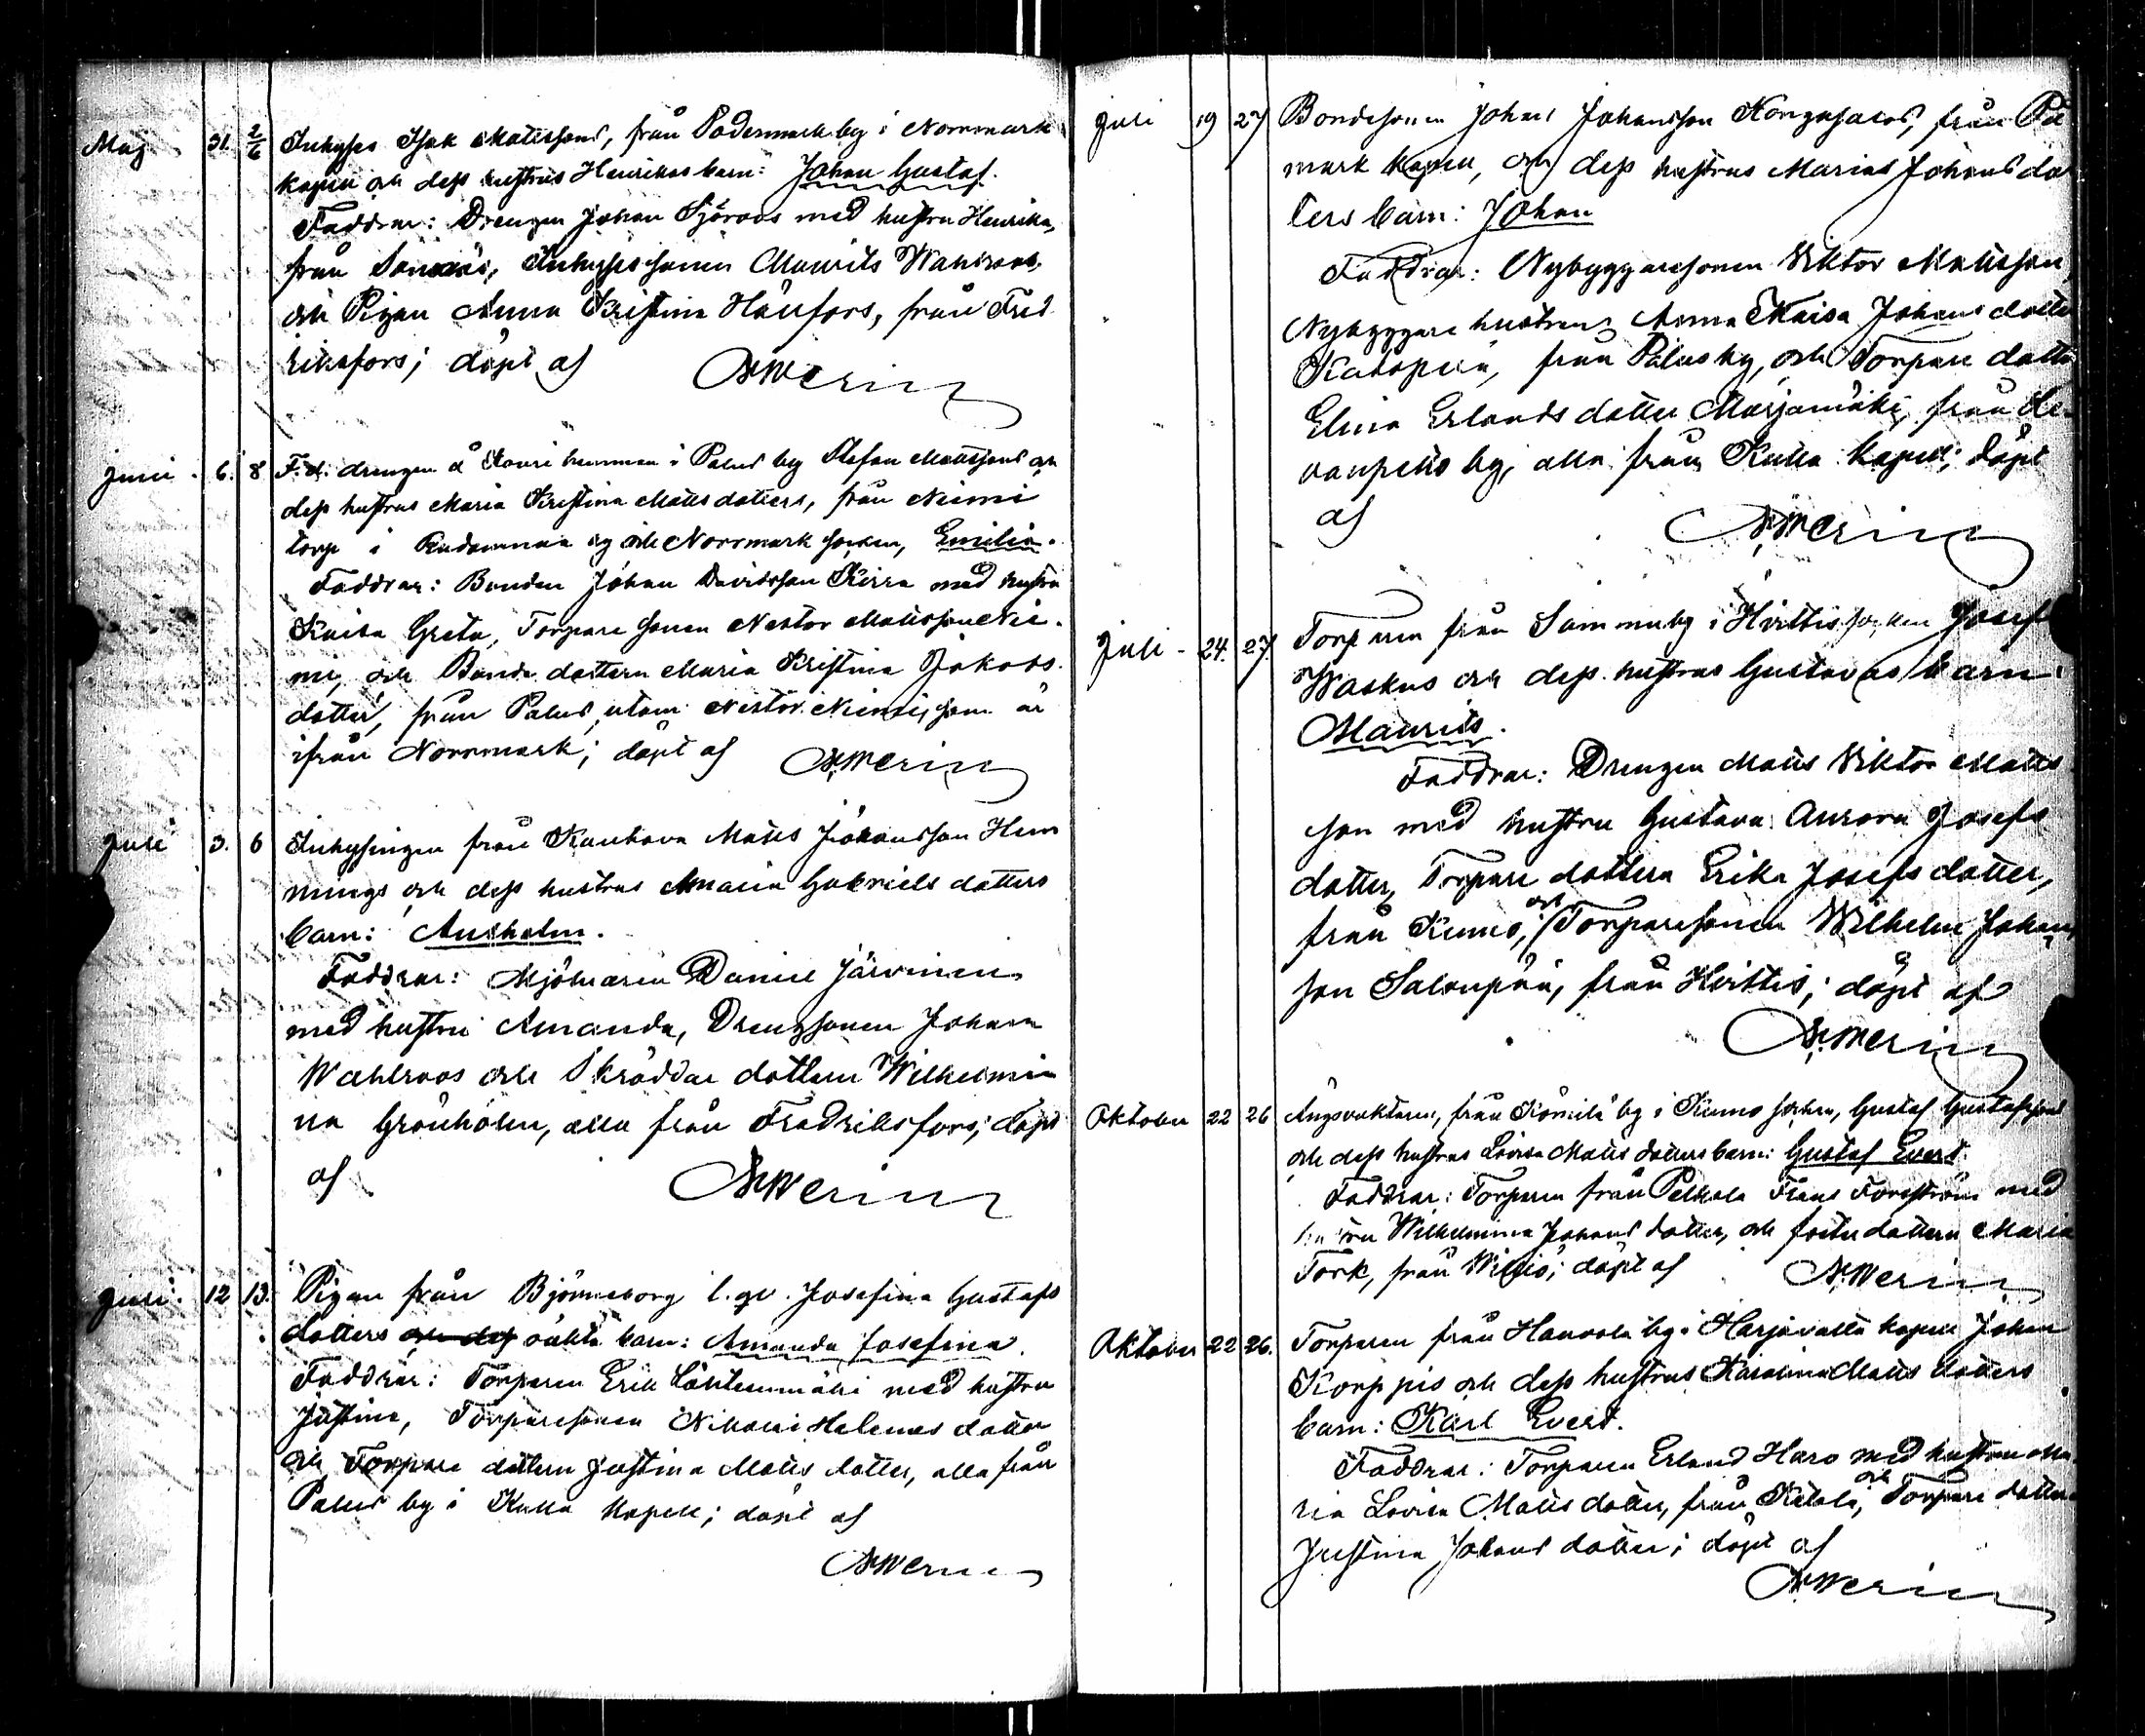 Maj 31. 2/6 Inhyses Isak Mattssons, från Södermark by i Norrmark
kapell och dess hustrus Henrikas barn: Johan Gustaf.
Faddrar: Drengen Johan Sjöroos med hustru Henrika,
från Inhyses sonen Maurits Wahlroos,
och Pigan Anna Kristina Hänfors, från Fred
riksfors; döpt af A.Merin
Juni. 6. 8 F.d. drengen å hemman i Palus by Stefan Mattssons och
dess hustrus Maria Kristina Matts dotters, från Niemi
torp i by och Norrmark socken, Emilia.
Faddrar: Bonden Johan Davidsson Kirra med hustru
Kaisa Greta, Torpare sonen Nestor Mattsson Nie-
mi, och Bonde dottern Maria Kristina Jakobs
dotter, från Palus, utom Nestor Niemi, som är
ifrån Norrmark; döpt af A.Merin
Juli 3. 6 Inhysingen från Kauhava Matts Johansson Hem
mings och dess hustrus Maria Gabriels dotters
barn: Ansholm.
Faddrar: Mjölnaren Daniel Järvinen
med hustru Amanda, Drengsonen Johan
Wahlroos och Skräddar dottern Wilhelmi
na Grönholm, alla från Fredriksfors; döpt
af A.Merin
Juli. 12 13. Pigan från Björneborg l. qv. Josefina Gustafs
dotters och dess oäkta barn: Amanda Josefina.
Faddrar: Torparen Erik Lähteenmäki med hustru
Justina, Torparesonen Nikolai Helenas dotter
och Torpare dottern Justina Matts dotter, alla från
Palus by i Kulla kapell; döpt af
A.Merin
Juli 19 27 Bondesonen Johan Johansson Kangasaros, från På
mark kapell, och dess hustrus Marias Johans dot
ters barn: Johan
Faddrar: Nybyggaresonen Viktor Mattsson
Nybyggare hustrun Anna Kaisa Johans dotter
från Palus by, och Torpare dotter
Elina Erlands dotter Marjamäki, från Le-
vanpelto by, alla från Kulla kapell; döpt
af A.Merin
Juli - 24. 27. Torparen från Sammu by i Hvittis socken Josef
Waskus och dess hustrus Gustavas barn:
Maurits.
Faddrar: Drengen Matts Viktor Matts
son med hustru Gustava Aurora Josefs
dotter, Torpare dottern Erika Josefs dotter,
från Kumo, och Torparesonen Wilhelm Johans
son Salonpää, från Hvittis; döpt af
A.Merin
Oktober 22 26 Ängsvaktaren, från Kömilä by i Kumo socken, Gustaf Gustafssons
och dess hustrus Lovisa Matts dotters barn: Gustaf Evert.
Faddrar: Torparen från Pelkola Frans Forsström med
hustru Wilhelmina Johans dotter, och foster dottern Maria
Tork, från döpt af A.Merin
Oktober 22 26. Torparen från Hanvola by i Harjavalta kapell Johan
Korppis och dess hustrus Karolina Matts dotters
barn: Karl Evert.
Faddrar: Torparen Erland Haro med hustru Ma
ria Lovisa Matts dotter, från Kitola, och Torpare dottern
Justina Johans dotter; döpt af
A.Merin